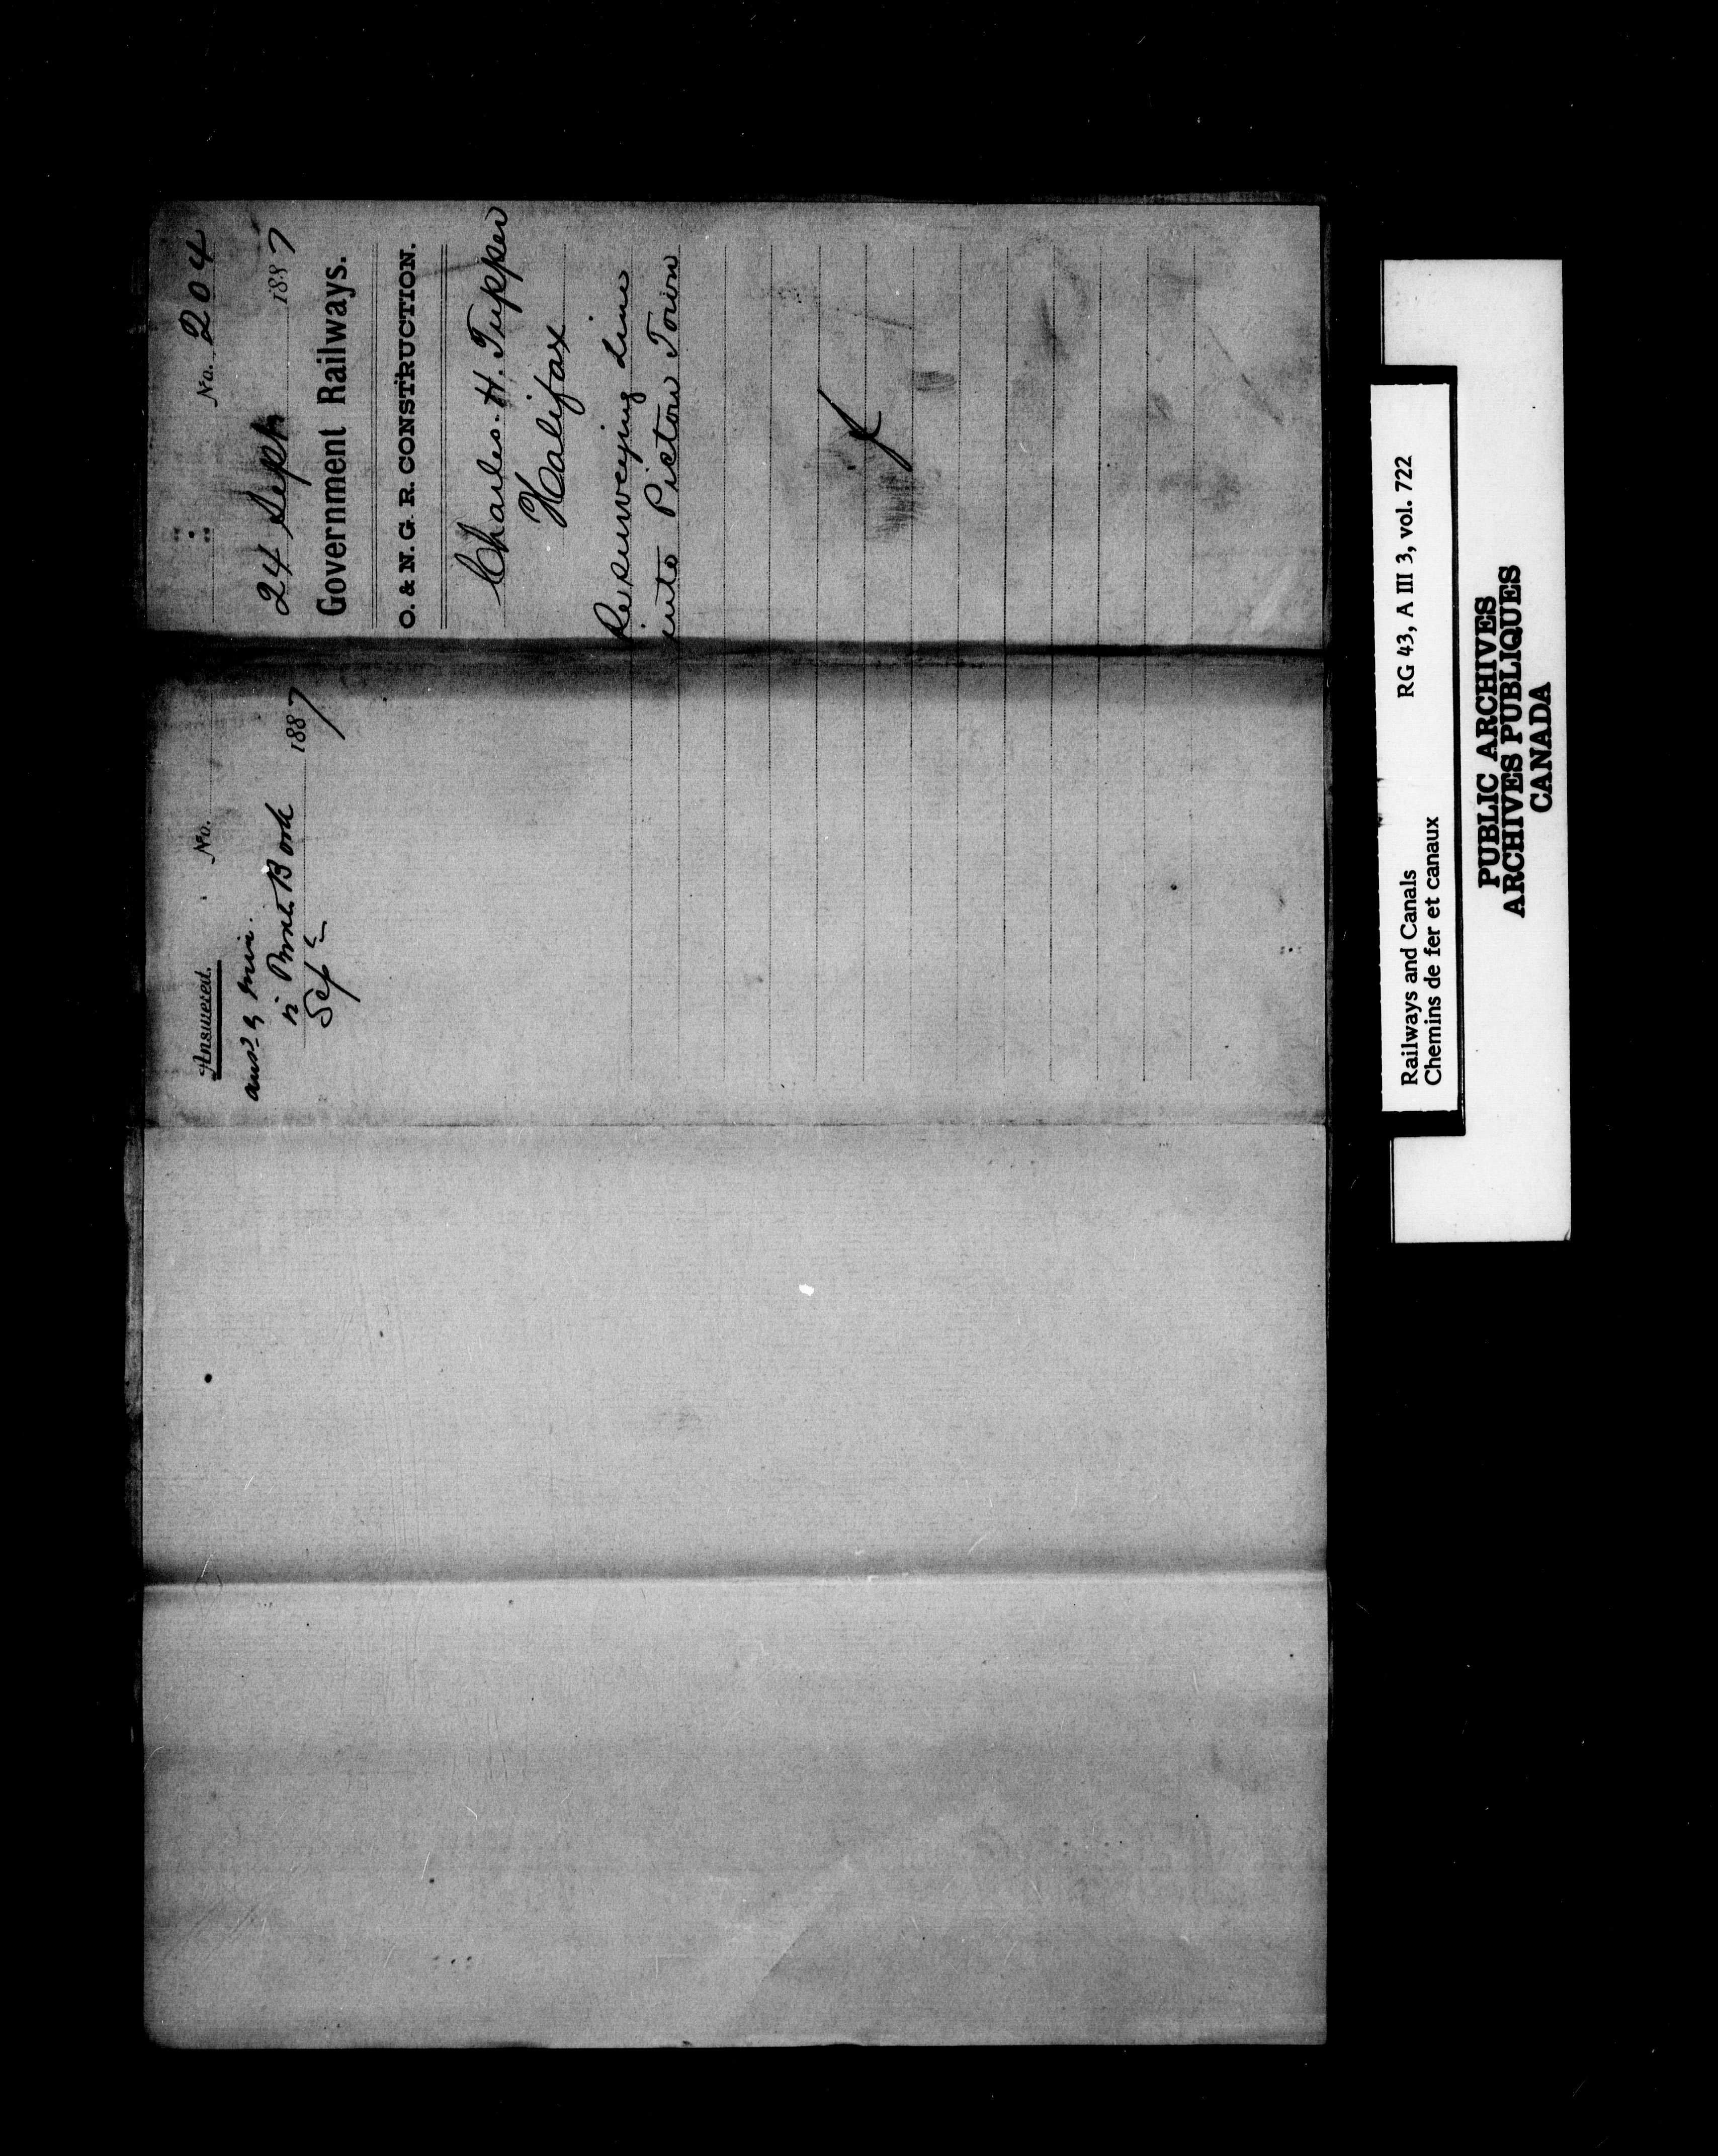 No. 204
24 Sept 1887
Government Railways.
O. & N. G. R. CONSTRUCTION.
Charles. H. Tupper
Halifax
Re surveying line
into Pictou Town
Answered. No.
ansd
Book
Sept 1887
Railways and Canals RG 43, A III 3, vol. 722
Chemins de fer et canaux
PUBLIC ARCHIVES
ARCHIVES PUBLIQUES
CANADA